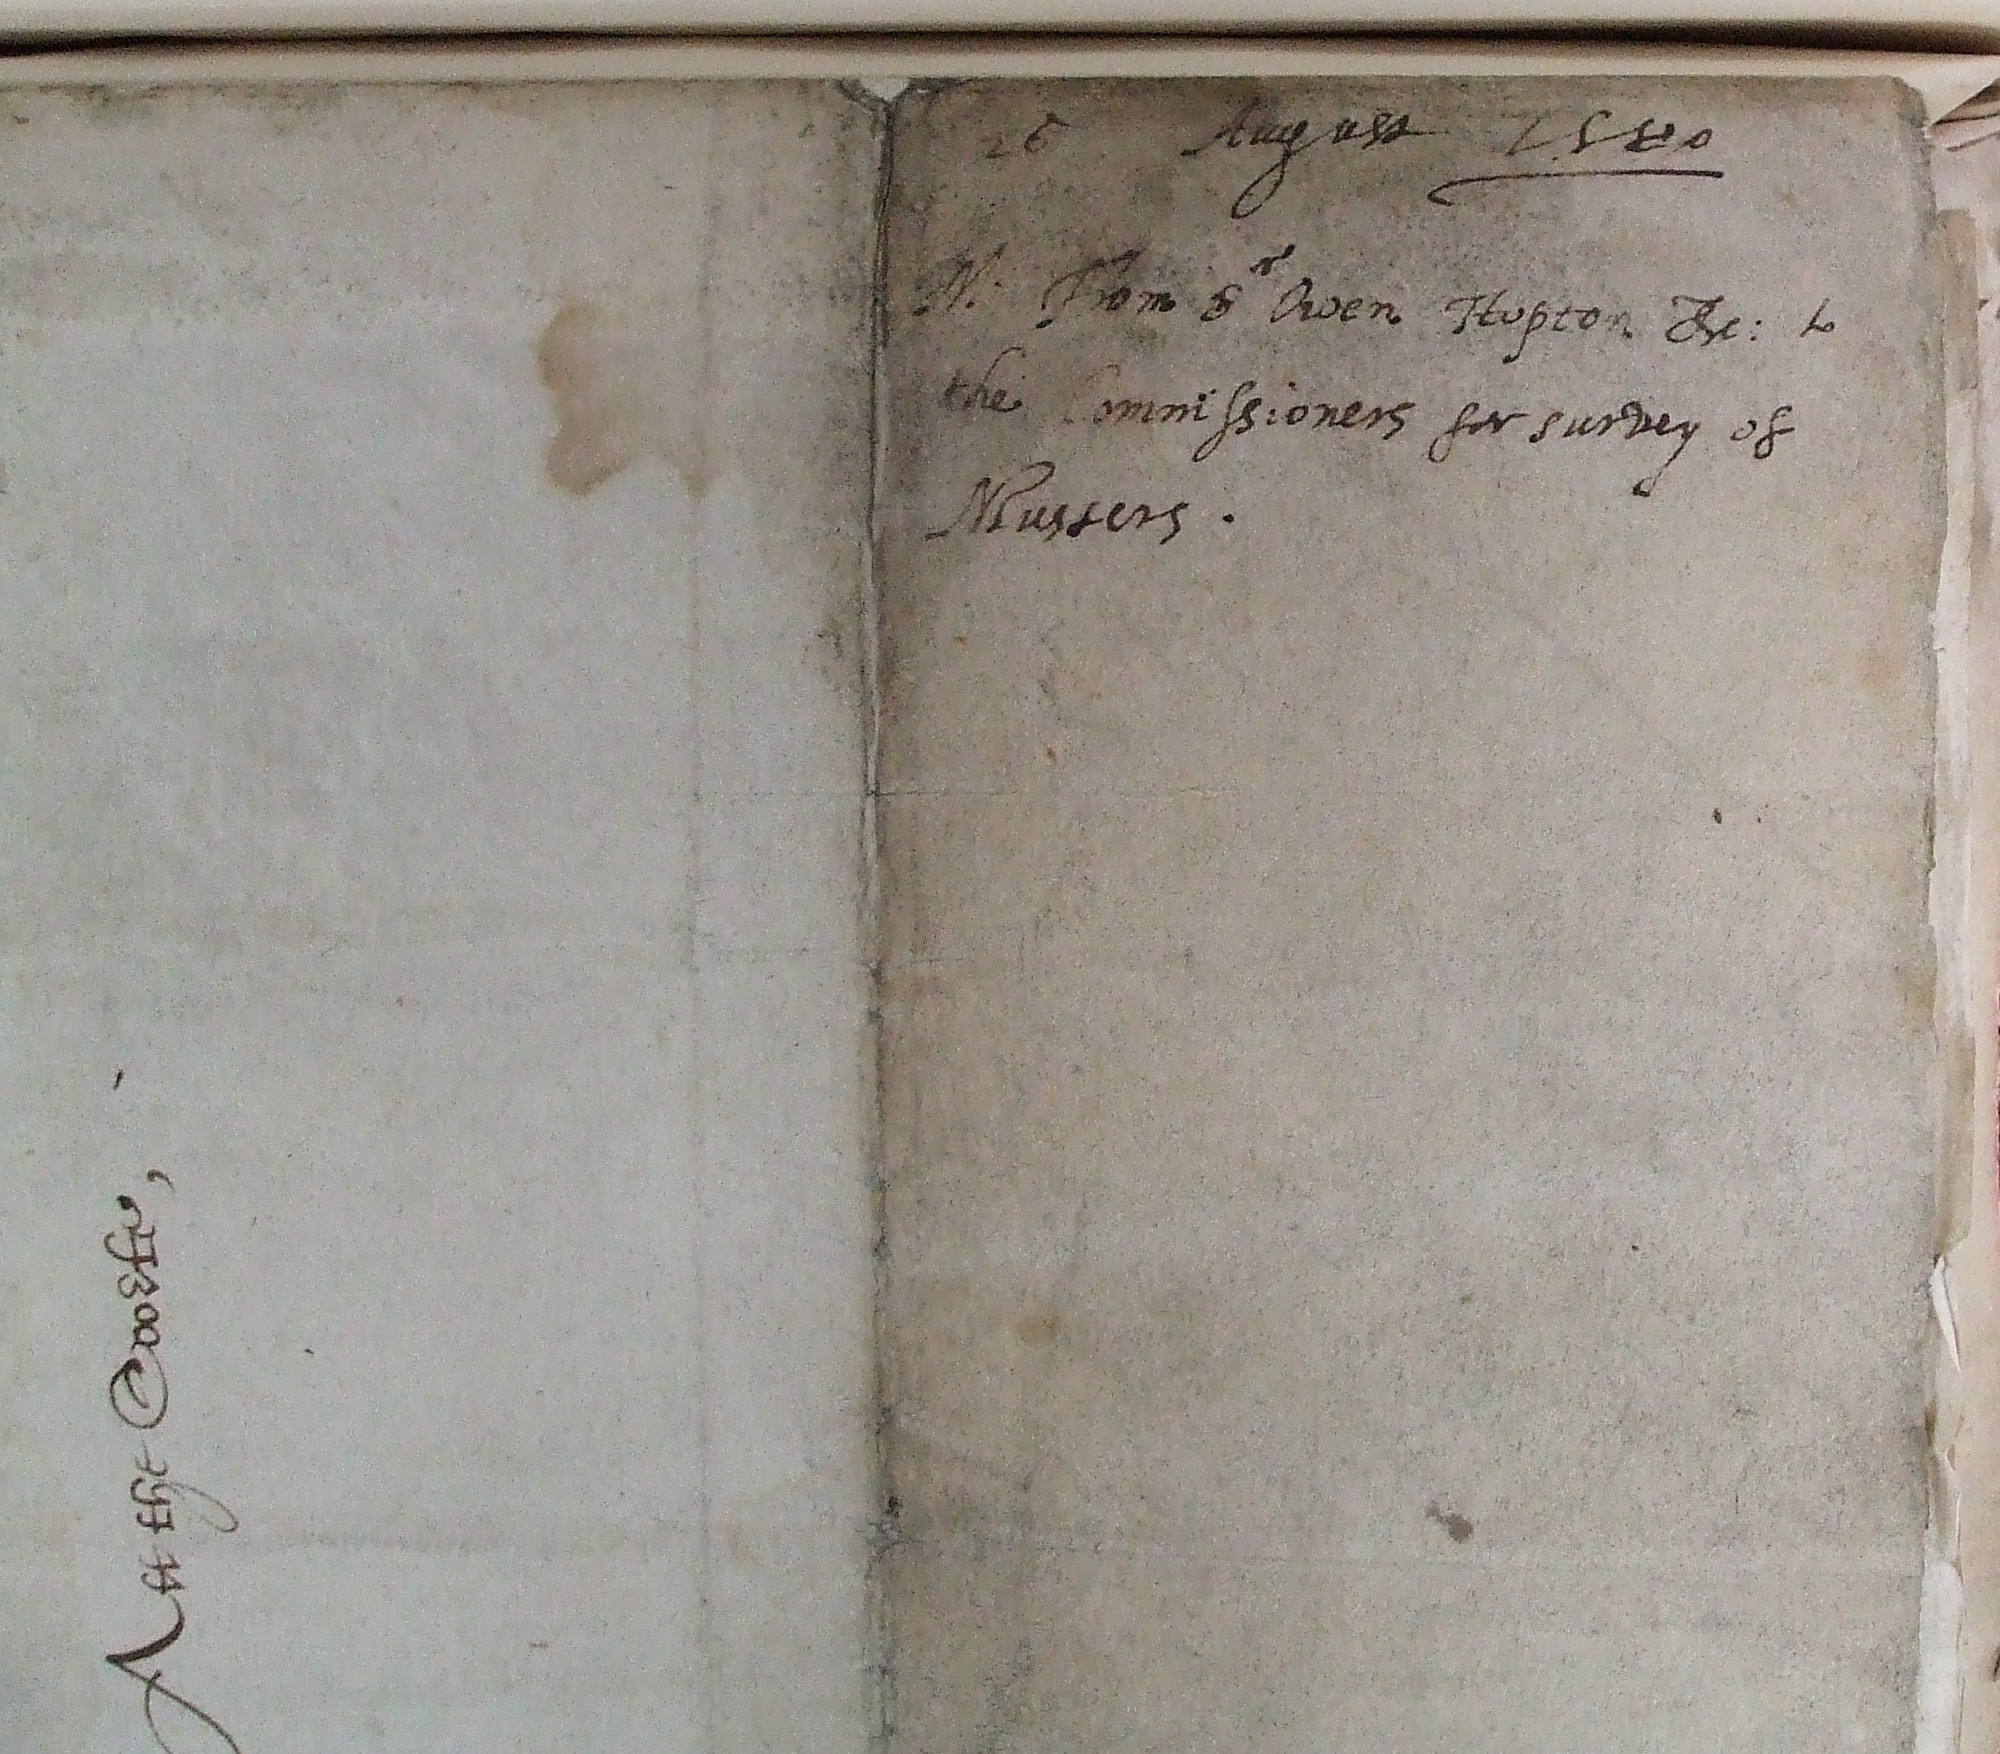 26 August 1580
M: From Sr Owen Hopton &c: to
the Commissioners for survey of
Musters.
Att the Courte,